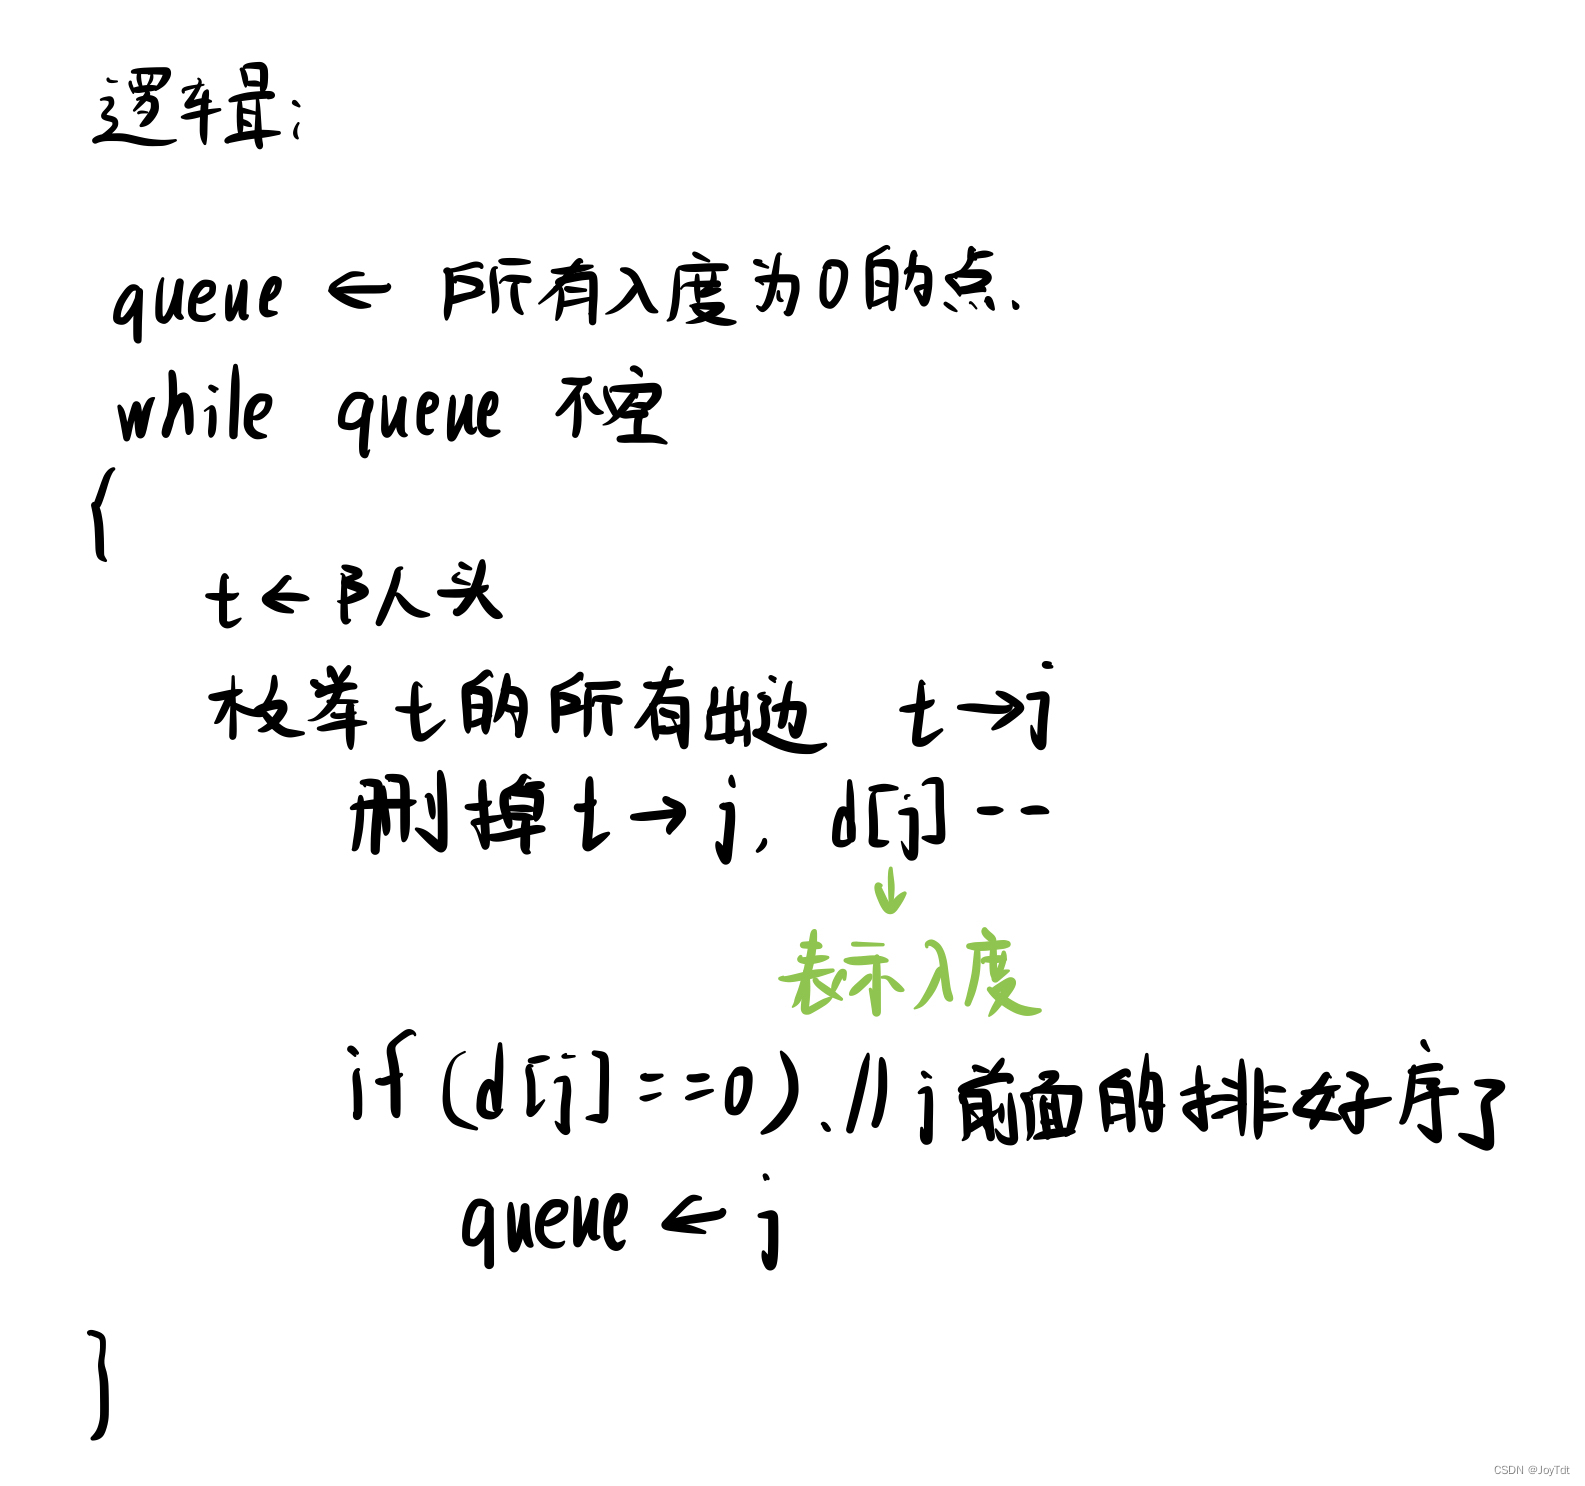 逻辑:
queue ← 所有入度为0的点.
while queue 不空
{
t ← 队头
枚举 t 的所有出边 t→j
删掉 t→j, d[j]--
↓
表示入度
if (d[j]==0). // j前面的排好序了
queue ← j
}
CSDN @JoyTdt